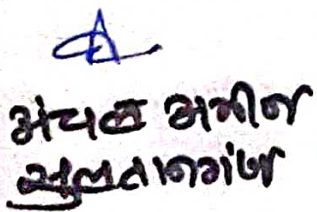 अंचल अमीन
सुलतानगंज